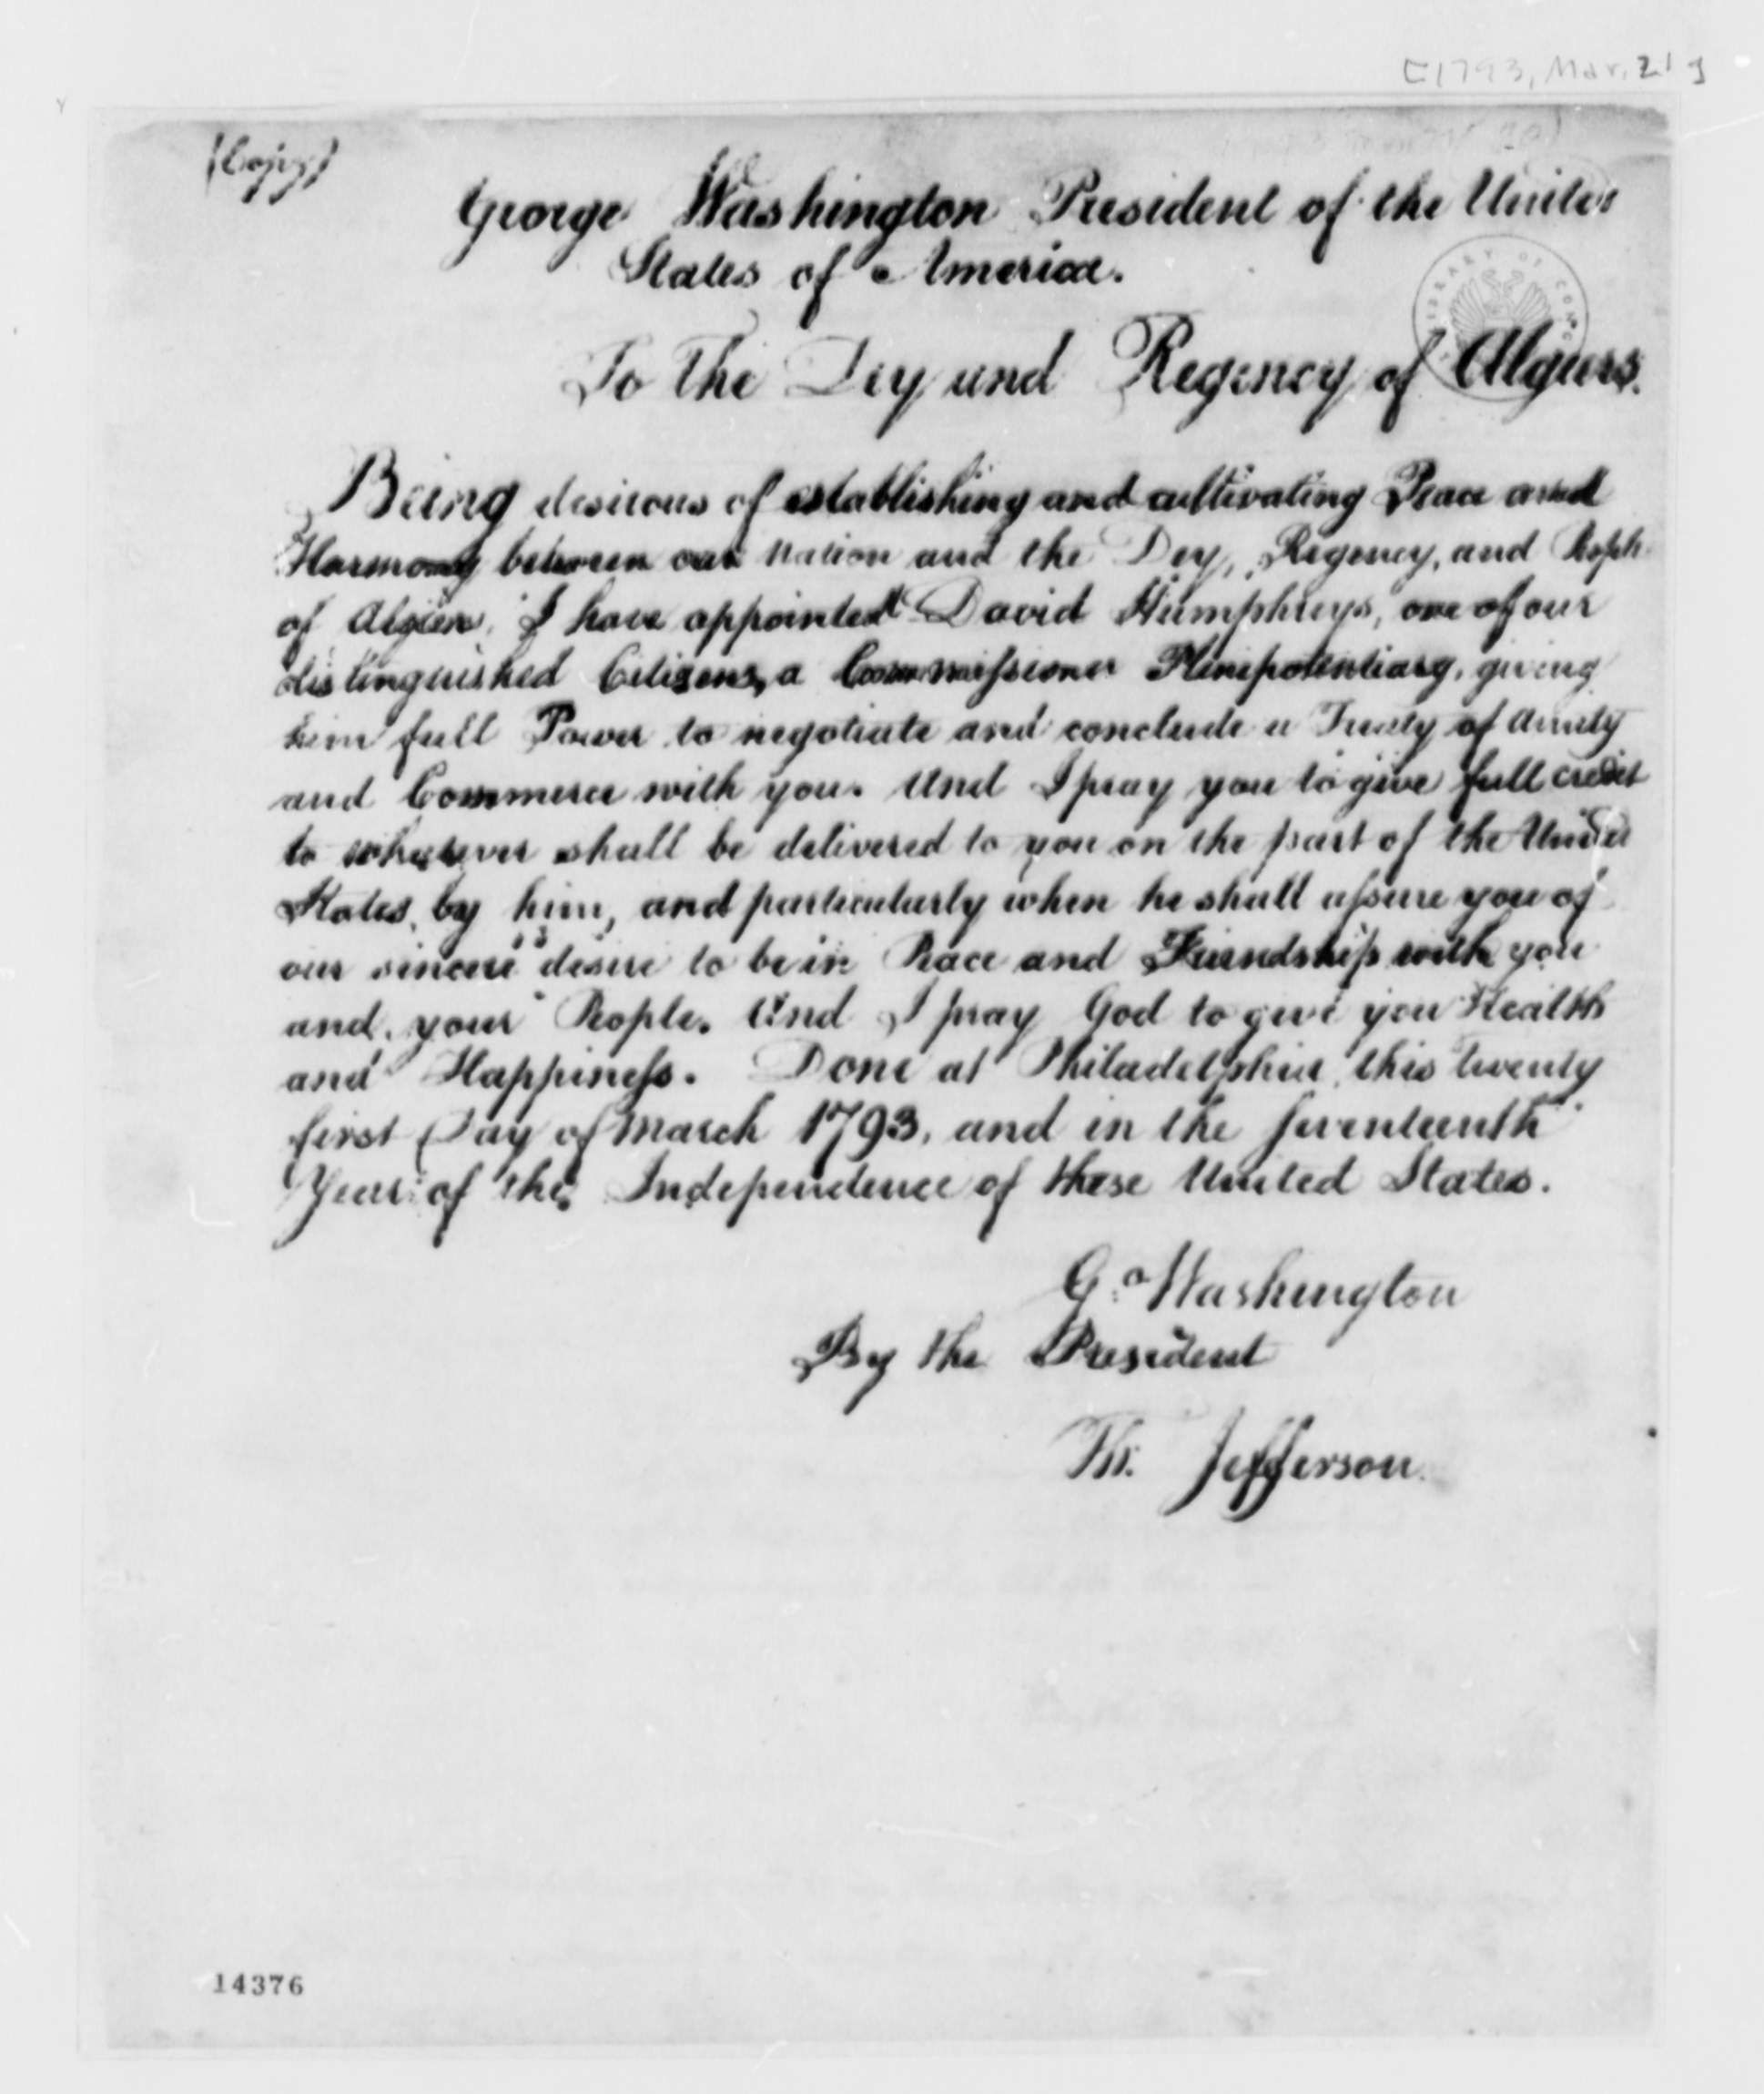 [1793, Mar. 21]
(Copy)
George Washington President of the United
States of America.
LIBRARY OF CONGRESS
To the Dey and Regency of Algiers.
Being desirous of establishing and cultivating Peace and
Harmony between our Nation and the Dey, Regency, and People
of Algiers, I have appointed David Humphreys, one of our
distinguished Citizens, a Commissioner Plenipotentiary, giving
him full Power to negotiate and conclude a Treaty of Amity
and Commerce with you. And I pray you to give full credit
to whatever shall be delivered to you on the part of the United
States, by him, and particularly when he shall assure you of
our sincere desire to be in Peace and Friendship with you
and your People. And I pray God to give you Health
and Happiness. Done at Philadelphia this twenty
first Day of March 1793, and in the seventeenth
Year of the Independence of these United States.
Go. Washington
By the President
Th: Jefferson
14376